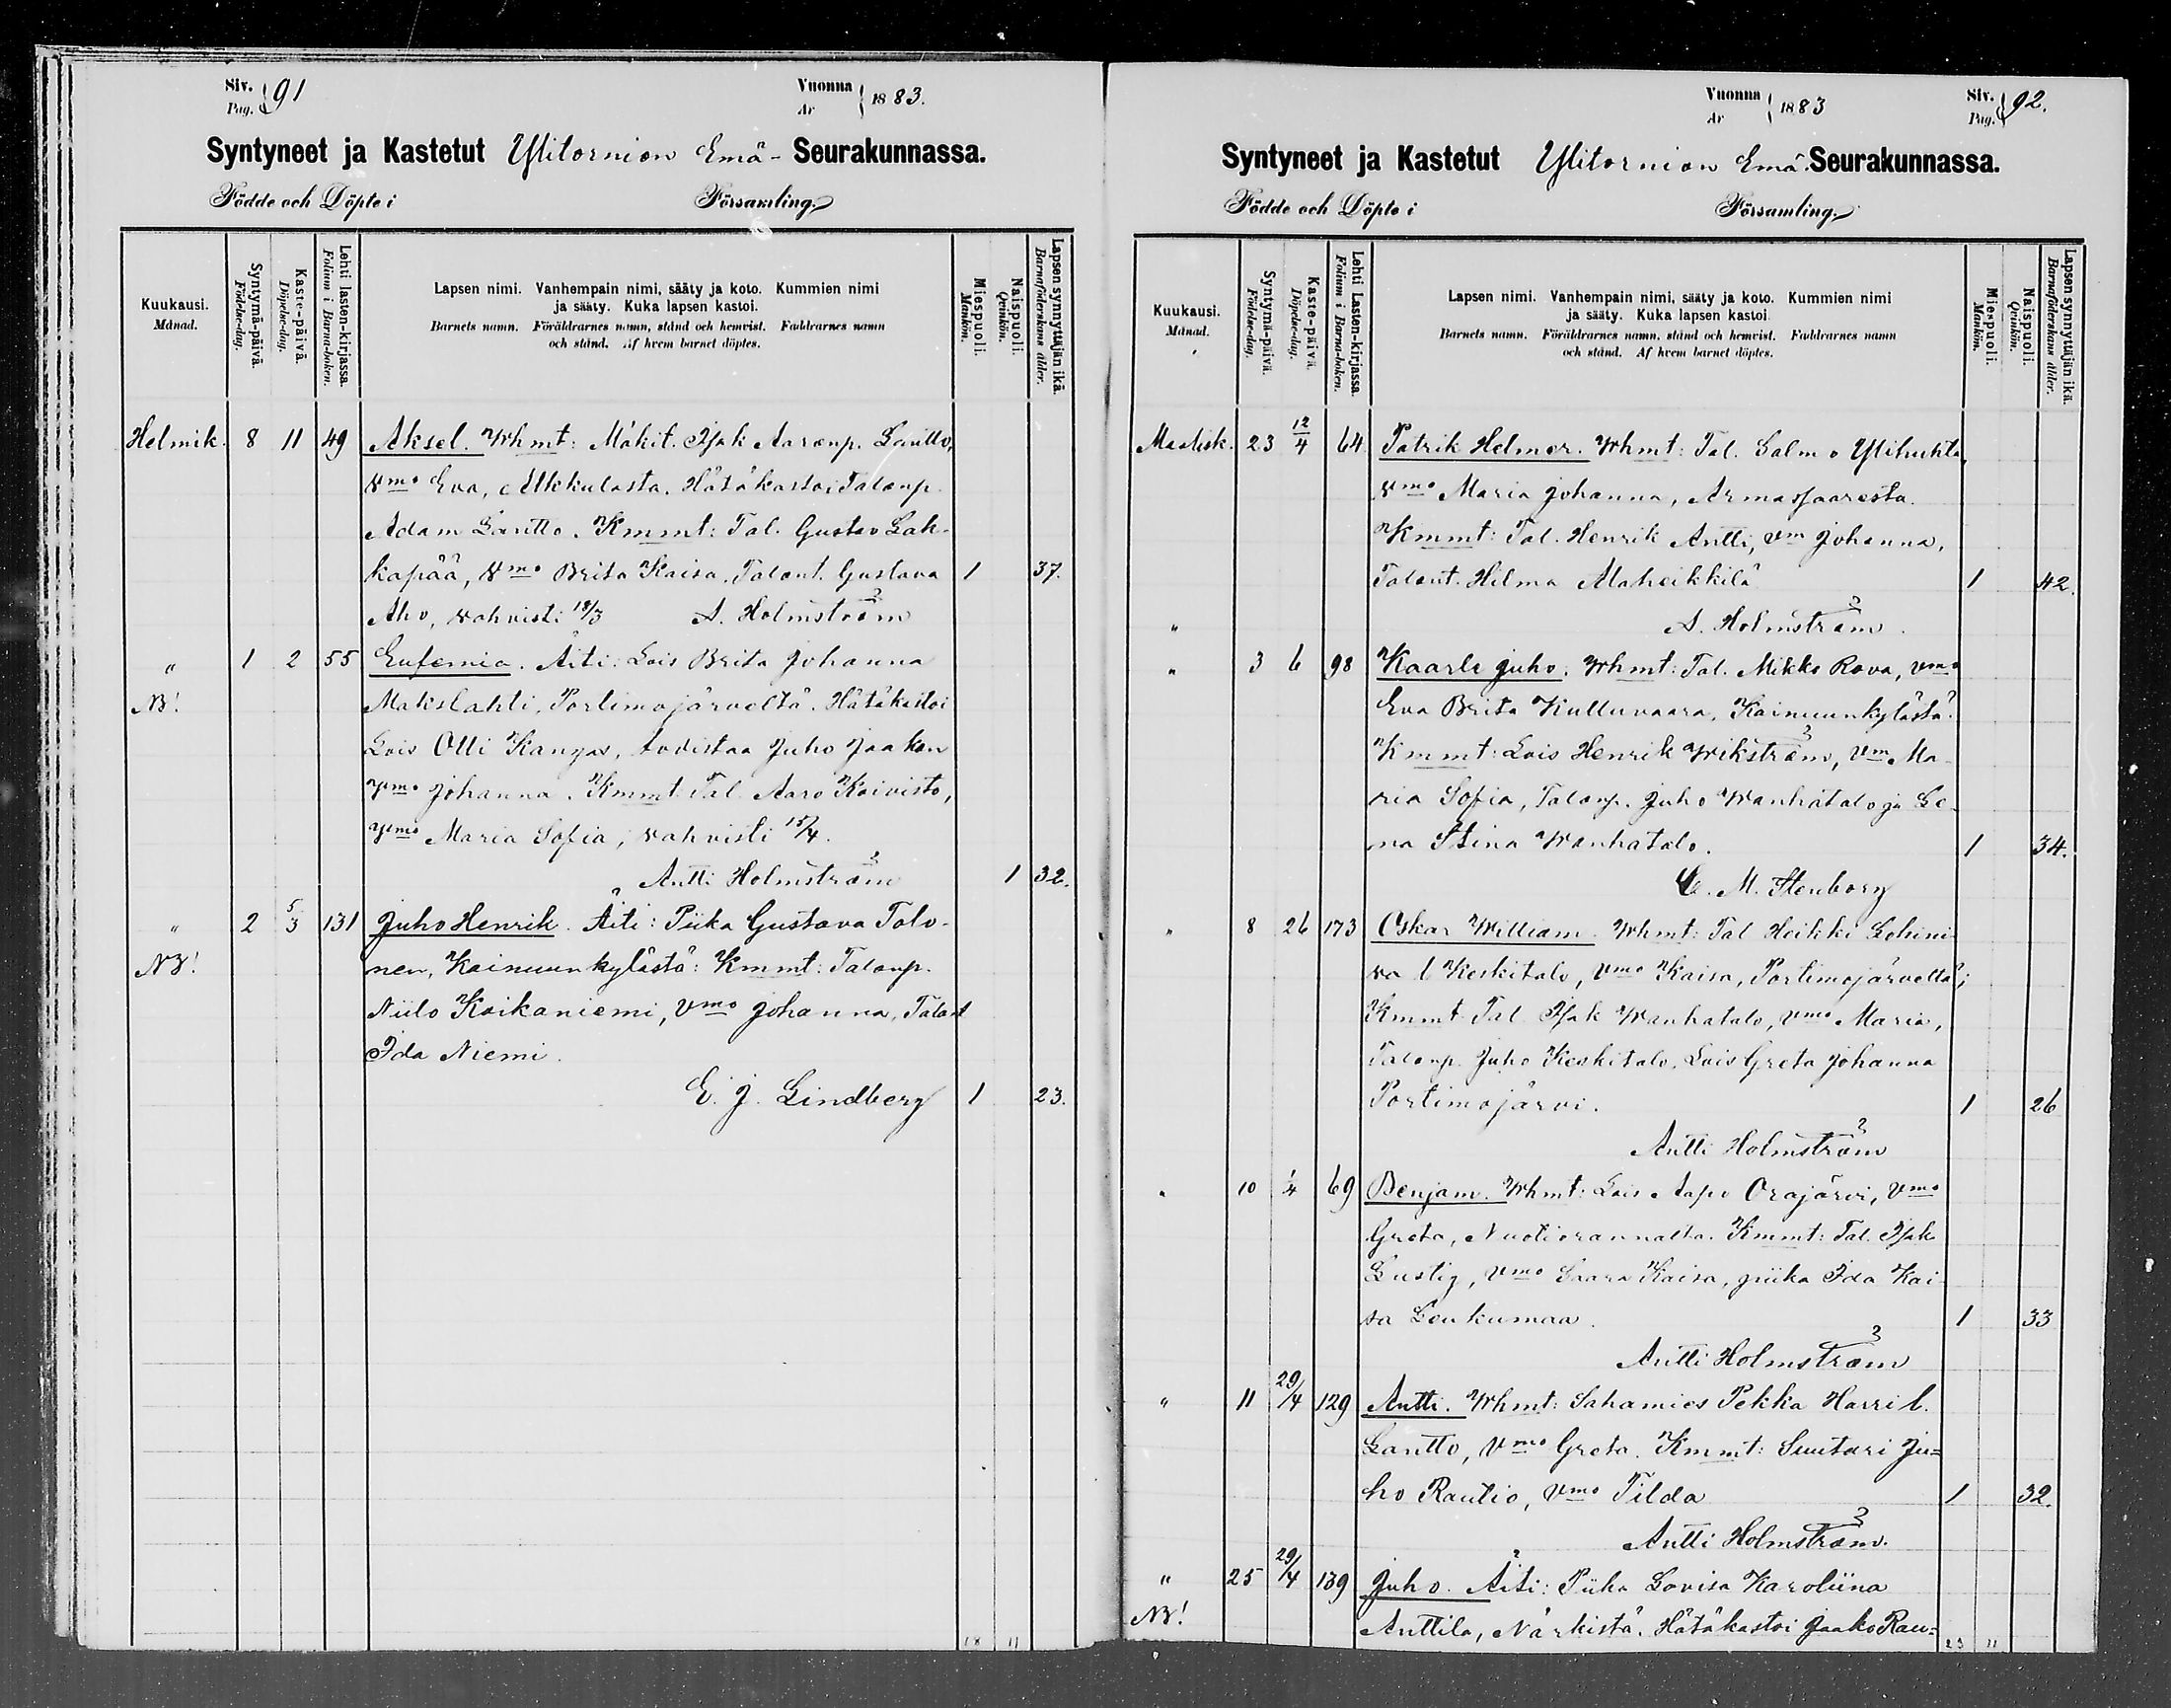 Siv. Pag. 91
Vuonna År 1883.
Syntyneet ja Kastetut Ylitornion Emä- Seurakunnassa.
Födde och Döpte i Församling.
Kuukausi. Månad.
Syntymä-päivä. Födelse-dag.
Kaste-päivä. Döpelse-dag.
Lehti lasten-kirjassa. Folium i Barna-boken.
Lapsen nimi. Vanhempain nimi, sääty ja koto. Kummien nimi
ja sääty. Kuka lapsen kastoi.
Barnets namn. Föräldrarnes namn, stånd och hemvist. Faddrarnes namn
och stånd. Af hvem barnet döptes.
Miespuoli. Mankön.
Naispuoli. Qvinkön.
Lapsen synnyttäjän ikä. Barnaföderskans ålder.
Helmik. 8 11 49 Aksel. Whmt: Mäkit. Isak Aaronp. Lantto,
vmo Eva, Alkkulasta. Hätäkastoi Talonp.
Adam Lantto. Kmmt: Tal. Gustav Lak-
kapää, vmo Brita Kaisa, Talont. Gustava 1 37.
Aho, vahvisti 18/3 A. Holmström
" 1 2 55 Eufemia. Äiti: Lois Brita Johanna
NB! Makslahti, Portimojärveltä. Hätäkastoi
Lois Olli Kangas, todistaa Juho Jaakon
vmo Johanna. Kmmt Tal. Aaro Koivisto,
vmo Maria Sofia; vahvisti 15/4.
Antti Holmström 1 32.
" 2 5/3 131 Juho Henrik. Äiti: Piika Gustava Tolo-
NB! nen, Kainuunkylästä: Kmmt: Talonp.
Niilo Koikaniemi, Vmo Johanna, Talont
Ida Niemi.
E. J. Lindberg 1 23.
18 11
Vuonna År 1883
Siv. Pag. 92.
Syntyneet ja Kastetut Ylitornion Emä Seurakunnassa.
Födde och Döpte i Församling.
Kuukausi. Månad.
Syntymä-päivä. Födelse-dag.
Kaste-päivä. Döpelse-dag.
Lehti Lasten-kirjassa. Folium i Barna-boken.
Lapsen nimi. Vanhempain nimi, sääty ja koto. Kummien nimi
ja sääty. Kuka lapsen kastoi.
Barnets namn. Föräldrarnes namn, stånd och hemvist. Faddrarnes namn
och stånd. Af hvem barnet döptes.
Miespuoli. Mankön.
Naispuoli. Qvinkön.
Lapsen synnyttäjän ikä. Barnaföderskans ålder.
Maalisk. 23 12/4 64 Patrik Helmer. Whmt: Tal. Salmo Ylihuhta,
vmo Maria Johanna, Armassaaresta.
Kmmt: Tal. Henrik Antti, vm Johanna,
Talont. Hilma Alaheikkilä 1 42.
" A. Holmström.
" 3 6 98 Kaarle Juho. Whmt: Tal. Mikko Rova, vmo
Eva Brita Kulluvaara, Kainuunkylästä.
Kmmt: Lois Henrik Wikström, Vm Ma-
ria Sofia, Talonp. Juho Wanhatalo ja Le-
na Stina Wanhatalo. 1 34.
C. M. Stenborg
" 8 26 173 Oskar William. Whmt: Tal Heikki Lohini-
va l Keskitalo, Vmo Kaisa, Portimojärveltä;
Kmmt Tal. Isak Wanhatalo, vmo Maria,
Talonp. Juho Keskitalo, Lois Greta Johanna
Portimojärvi. 1 26
Antti Holmström
" 10 1/4 69 Benjam. Whmt: Lois Aapo Orajärvi, Vmo
Greta, Nuotiorannalta. Kmmt: Tal. Isak
Lustig, Vmo Saara Kaisa, piika Ida Kai-
sa Leukumaa. 1 33
Antti Holmström
" 11 29/4 129 Antti. Whmt: Sahamies Pekka Harri l.
Lantto, Vmo Greta. Kmmt: Suutari Ju=
ho Rautio, Vmo Tilda 1 32.
Antti Holmström.
" 25 29/4 139 Juho. Äiti: Piika Lovisa Karoliina
NB! Anttila, Närkistä. Hätäkastoi Jaako Rau=
23 11